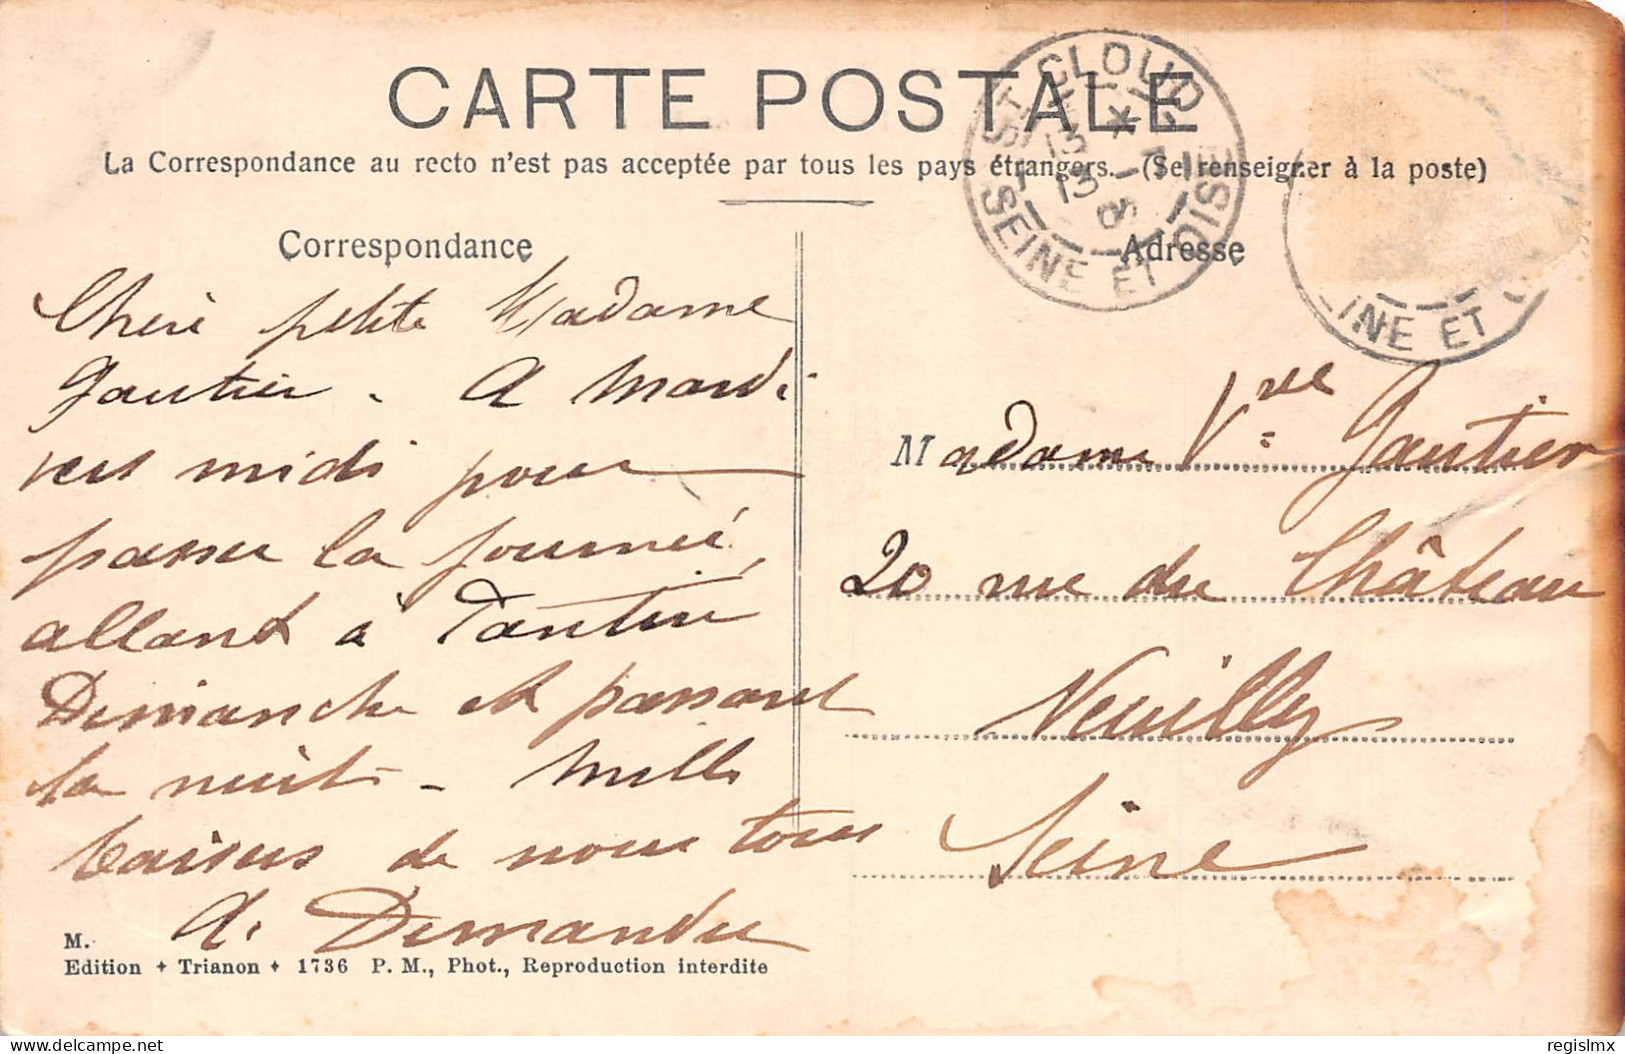 CARTE POSTALE
La Correspondance au recto n'est pas acceptée par tous les pays étrangers. (Se renseigner à la poste)
Correspondance
Chère petite Madame
Gautier - A Mardi
vers midi pour
passer la journée,
allant à Pantin
Dimanche et passant
la nuit - Mille
baisers de nous tous
M.
Edition ✦ Trianon ✦ 1736 P. M., Phot., Reproduction interdite
ST CLOUD
SEINE ET OISE
13
8
INE ET
Adresse
Madame Vve Gautier
20 rue du Château
Neuilly
Seine
Delcampe.net
regislmx